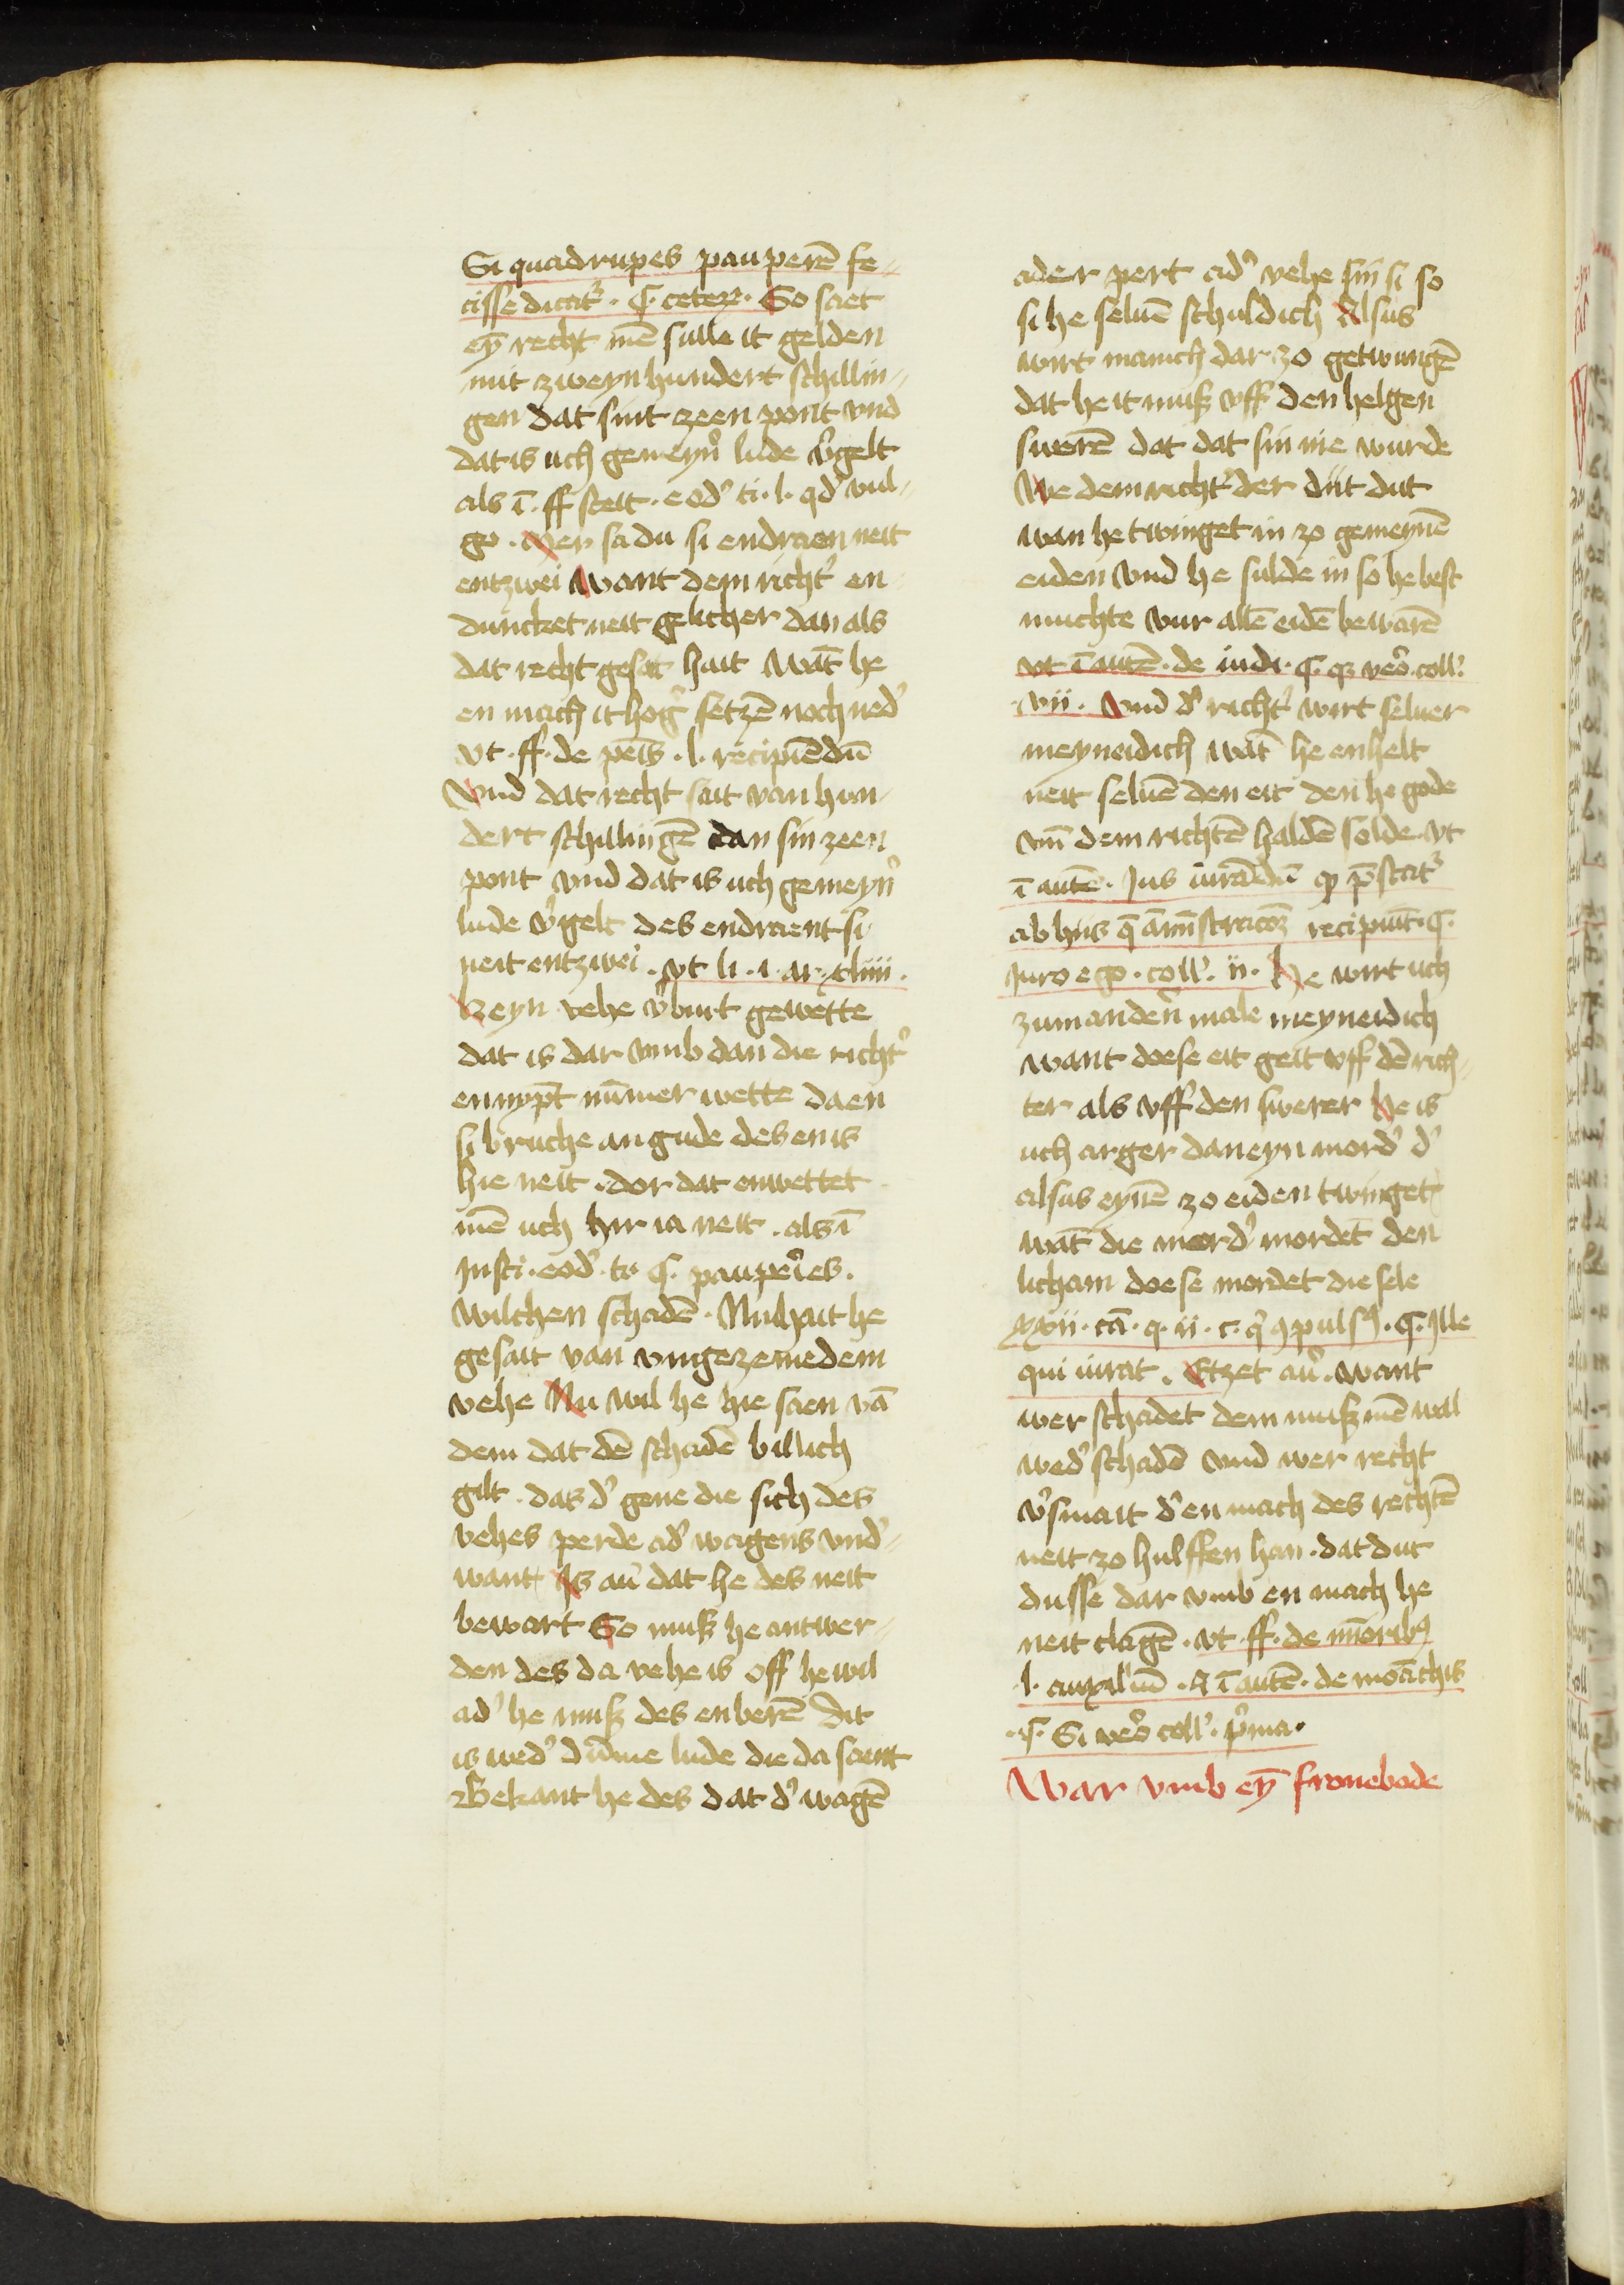 Si quadrupes pauperē fe-
cisse dicat᷒ . ¶ . ceteꝝ . So saet
eȳ recht mē sulle it gelden
mit zweyn hundert schillin-
gen dat sint zeen pont vnd
dat is uch gemeyn᷒ lude v᷒gelt
als ī . ff steit . eod᷒ ti . l . qd᷒ vul-
go . Wer sa du si endraen neit
entzwei Want dem richt᷒ en
duncket neit gelicher dan als
dat recht gesat hait Wāt he
en mach it hog᷒ setzē noch ned᷒
vt . ff . de peīs . l . recipiēdū
Vnd dat recht sait van hun-
dert schillingē dan sin zeen
pont vnd dat is uch gemeyn᷒
lude v᷒gelt des endraent si
neit entzwei . vt li . i . ar . xliiii .
Keyn vehe v᷒burt gewette
dat is dar vmb dan die richt᷒
ennypt nūmer wette daen
si bruche an gude des enis
hie neit . dor dat enwettet
mē uch hir ia neit . als ī
Insti . eod᷒ . ti ¶ . paup᷒ies .
Wilchen schadē . Nu hait he
gesait van vngezemedem
vehe Nu wil he hie saen vā
dem dat dē schadē billich
gilt . das d᷒ gene die sich des
vehes perde ad᷒ wagens vnd᷒-
want Is au᷒ dat he des neit
bewart So muß he antwer-
den des da vehe is off he wil
ad᷒ he muß des enberē Dit
is wed᷒ dūme lude die da saent
Bekant he des dat d᷒ wagē
ader pert ad᷒ vehe sin si so
si he seluē schuldich Alsus
wirt manich dar zo getwungē
dat he it muß vff den helgen
swerē dat dat sin nie wurde
We dem richt᷒ der dut dat
wan he twinget in zo gemeynē
eiden vnd he sulde in so he best
muchte vur allē eidē bewarē
vt ī autē . de iudi . ¶ . qꝫ ve᷒o . coll᷒ .
. vii . Vnd d᷒ richt᷒ wirt seluer
meyneidich wāt he enhelt
neit seluē den eit den he gode
vn̄ dem richtē haldē solde . vt
ī autē . Ius iurādū qꝫ p̄stat᷒
ab hiis q̄ āmīstracōꝫ recipiūt . ¶ .
Iuro ego . coll᷒ . ii . He wirt uch
zum andern᷒ male meyneidich
want doese eit geit vff dē rich-
ter als vff den swerer He is
uch arger dan eyn mord᷒ d᷒
alsus eynē zo eiden twinget
wāt die mord᷒ mordet den
licham doese mordet die sele
xxii . cā . q . ii . c . q᷒ ꝯpulsꝰ . ¶ . Ille
qui iurat . Etzet au᷒ . want
wer schadet dem muß mē wal
wed᷒ schadē vnd wer recht
v᷒smait d᷒ en mach des rechtē
neit zo hulffen han . dat dut
dusse dar vmb en mach he
neit clagē . vt . ff . de mīoribꝰ
l . auxiliū . ⁊ ī autē . de moāchis
. ¶ . Si ve᷒o coll᷒ . p᷒ma .
War vmb eȳ fronebode